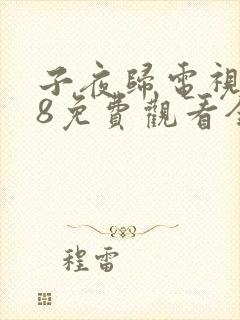 子夜歸電視
8免費觀看全
程雷